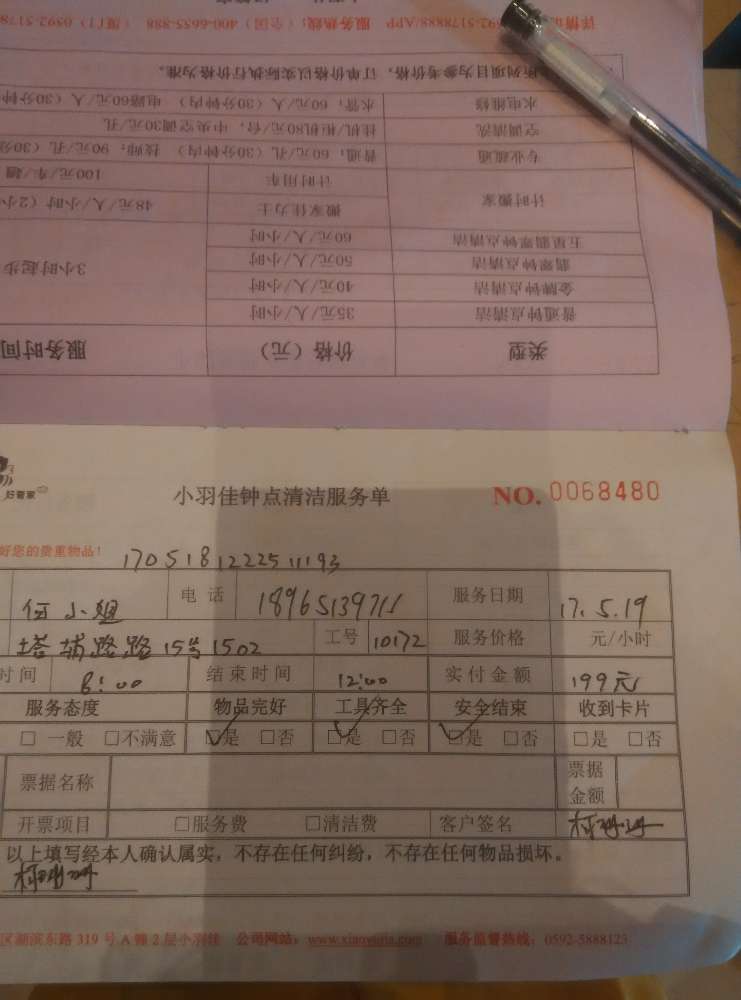 类型 价格（元） 服务时间
普通钟点清洁 35元/人/小时
金牌钟点清洁 40元/人/小时 3小时起步
翡翠钟点清洁 50元/人/小时
五星翡翠钟点清洁 60元/人/小时
计时搬家 搬家佳力士 48元/人/小时（2小
计时用车 100元/车/趟
专业疏通 普通：60元/孔（30分钟内） 技师：90元/孔（30分
空调清洗 挂机/柜机80元/台，中央空调30元/孔
水电维修 水管：60元/人（30分钟内） 电路60元/人（30分钟
所列项目为参考价格，订单价格以实际执行价格为准。
服务热线：（全国）400-6655-888 （厦门）0592-5178
好管家
小羽佳钟点清洁服务单 NO. 0068480
好您的贵重物品！ 170518122251193
何小姐 电话 18965139711 服务日期 17.5.19
塔埔路路15号1502 工号 10172 服务价格 元/小时
时间 8:00 结束时间 12:00 实付金额 199元
服务态度 物品完好 工具齐全 安全结束 收到卡片
□一般 □不满意 □是 □否 □是 □否 □是 □否 □是 □否
票据名称 票据金额
开票项目 □服务费 □清洁费 客户签名
以上填写经本人确认属实，不存在任何纠纷，不存在任何物品损坏。
区湖滨东路319号A幢2层小羽佳 公司网站：www.xiaoyujia.com 服务监督热线：0592-5888123